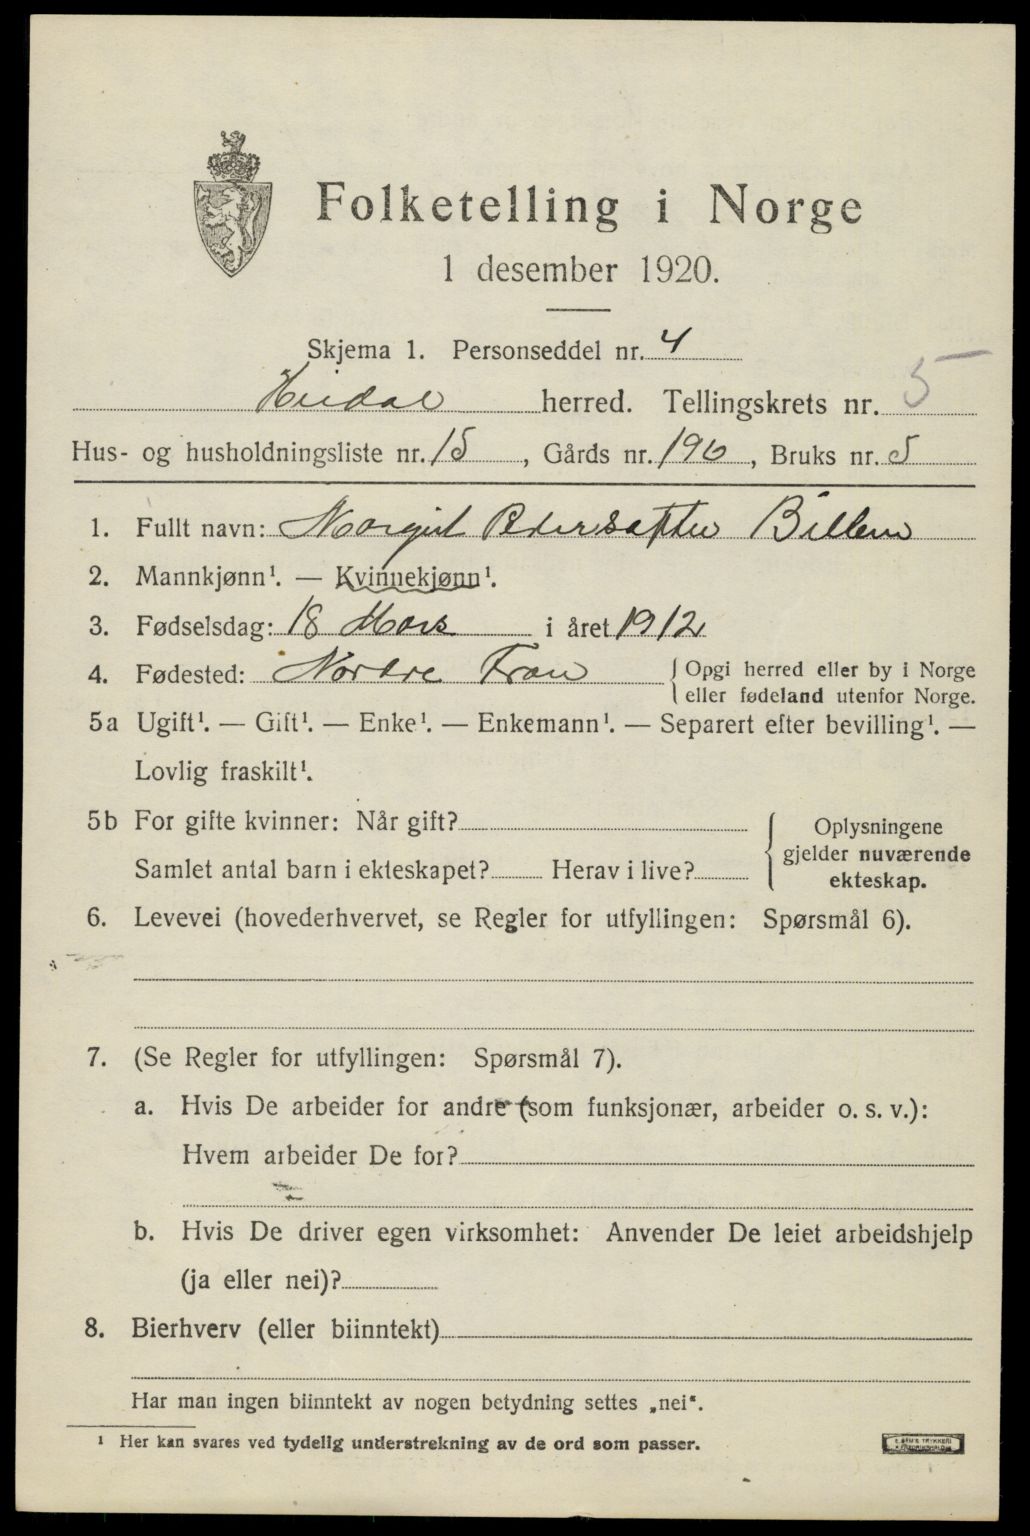 Folketelling i Norge
1 desember 1920.
Skjema 1. Personseddel nr. 4
Heidal herred. Tellingskrets nr. 5
Hus- og husholdningsliste nr. 15, Gårds nr. 196, Bruks nr. 5
1. Fullt navn: Margit Pedersdtter
2. Mannkjønn¹. — Kvinnekjønn¹.
3. Fødselsdag: 18 Mars i året 1912
4. Fødested: Nordre Fron { Opgi herred eller by i Norge
eller fødeland utenfor Norge.
5a Ugift¹. — Gift¹. — Enke¹. — Enkemann¹. — Separert efter bevilling¹. —
Lovlig fraskilt¹.
5b For gifte kvinner: Når gift?
Samlet antal barn i ekteskapet? Herav i live?
{ Oplysningene
gjelder nuværende
ekteskap.
6. Levevei (hovederhvervet, se Regler for utfyllingen: Spørsmål 6).
7. (Se Regler for utfyllingen: Spørsmål 7).
a. Hvis De arbeider for andre (som funksjonær, arbeider o. s. v.):
Hvem arbeider De for?
b. Hvis De driver egen virksomhet: Anvender De leiet arbeidshjelp
(ja eller nei)?
8. Bierhverv (eller biinntekt)
Har man ingen biinntekt av nogen betydning settes „nei“.
¹ Her kan svares ved tydelig understrekning av de ord som passer.